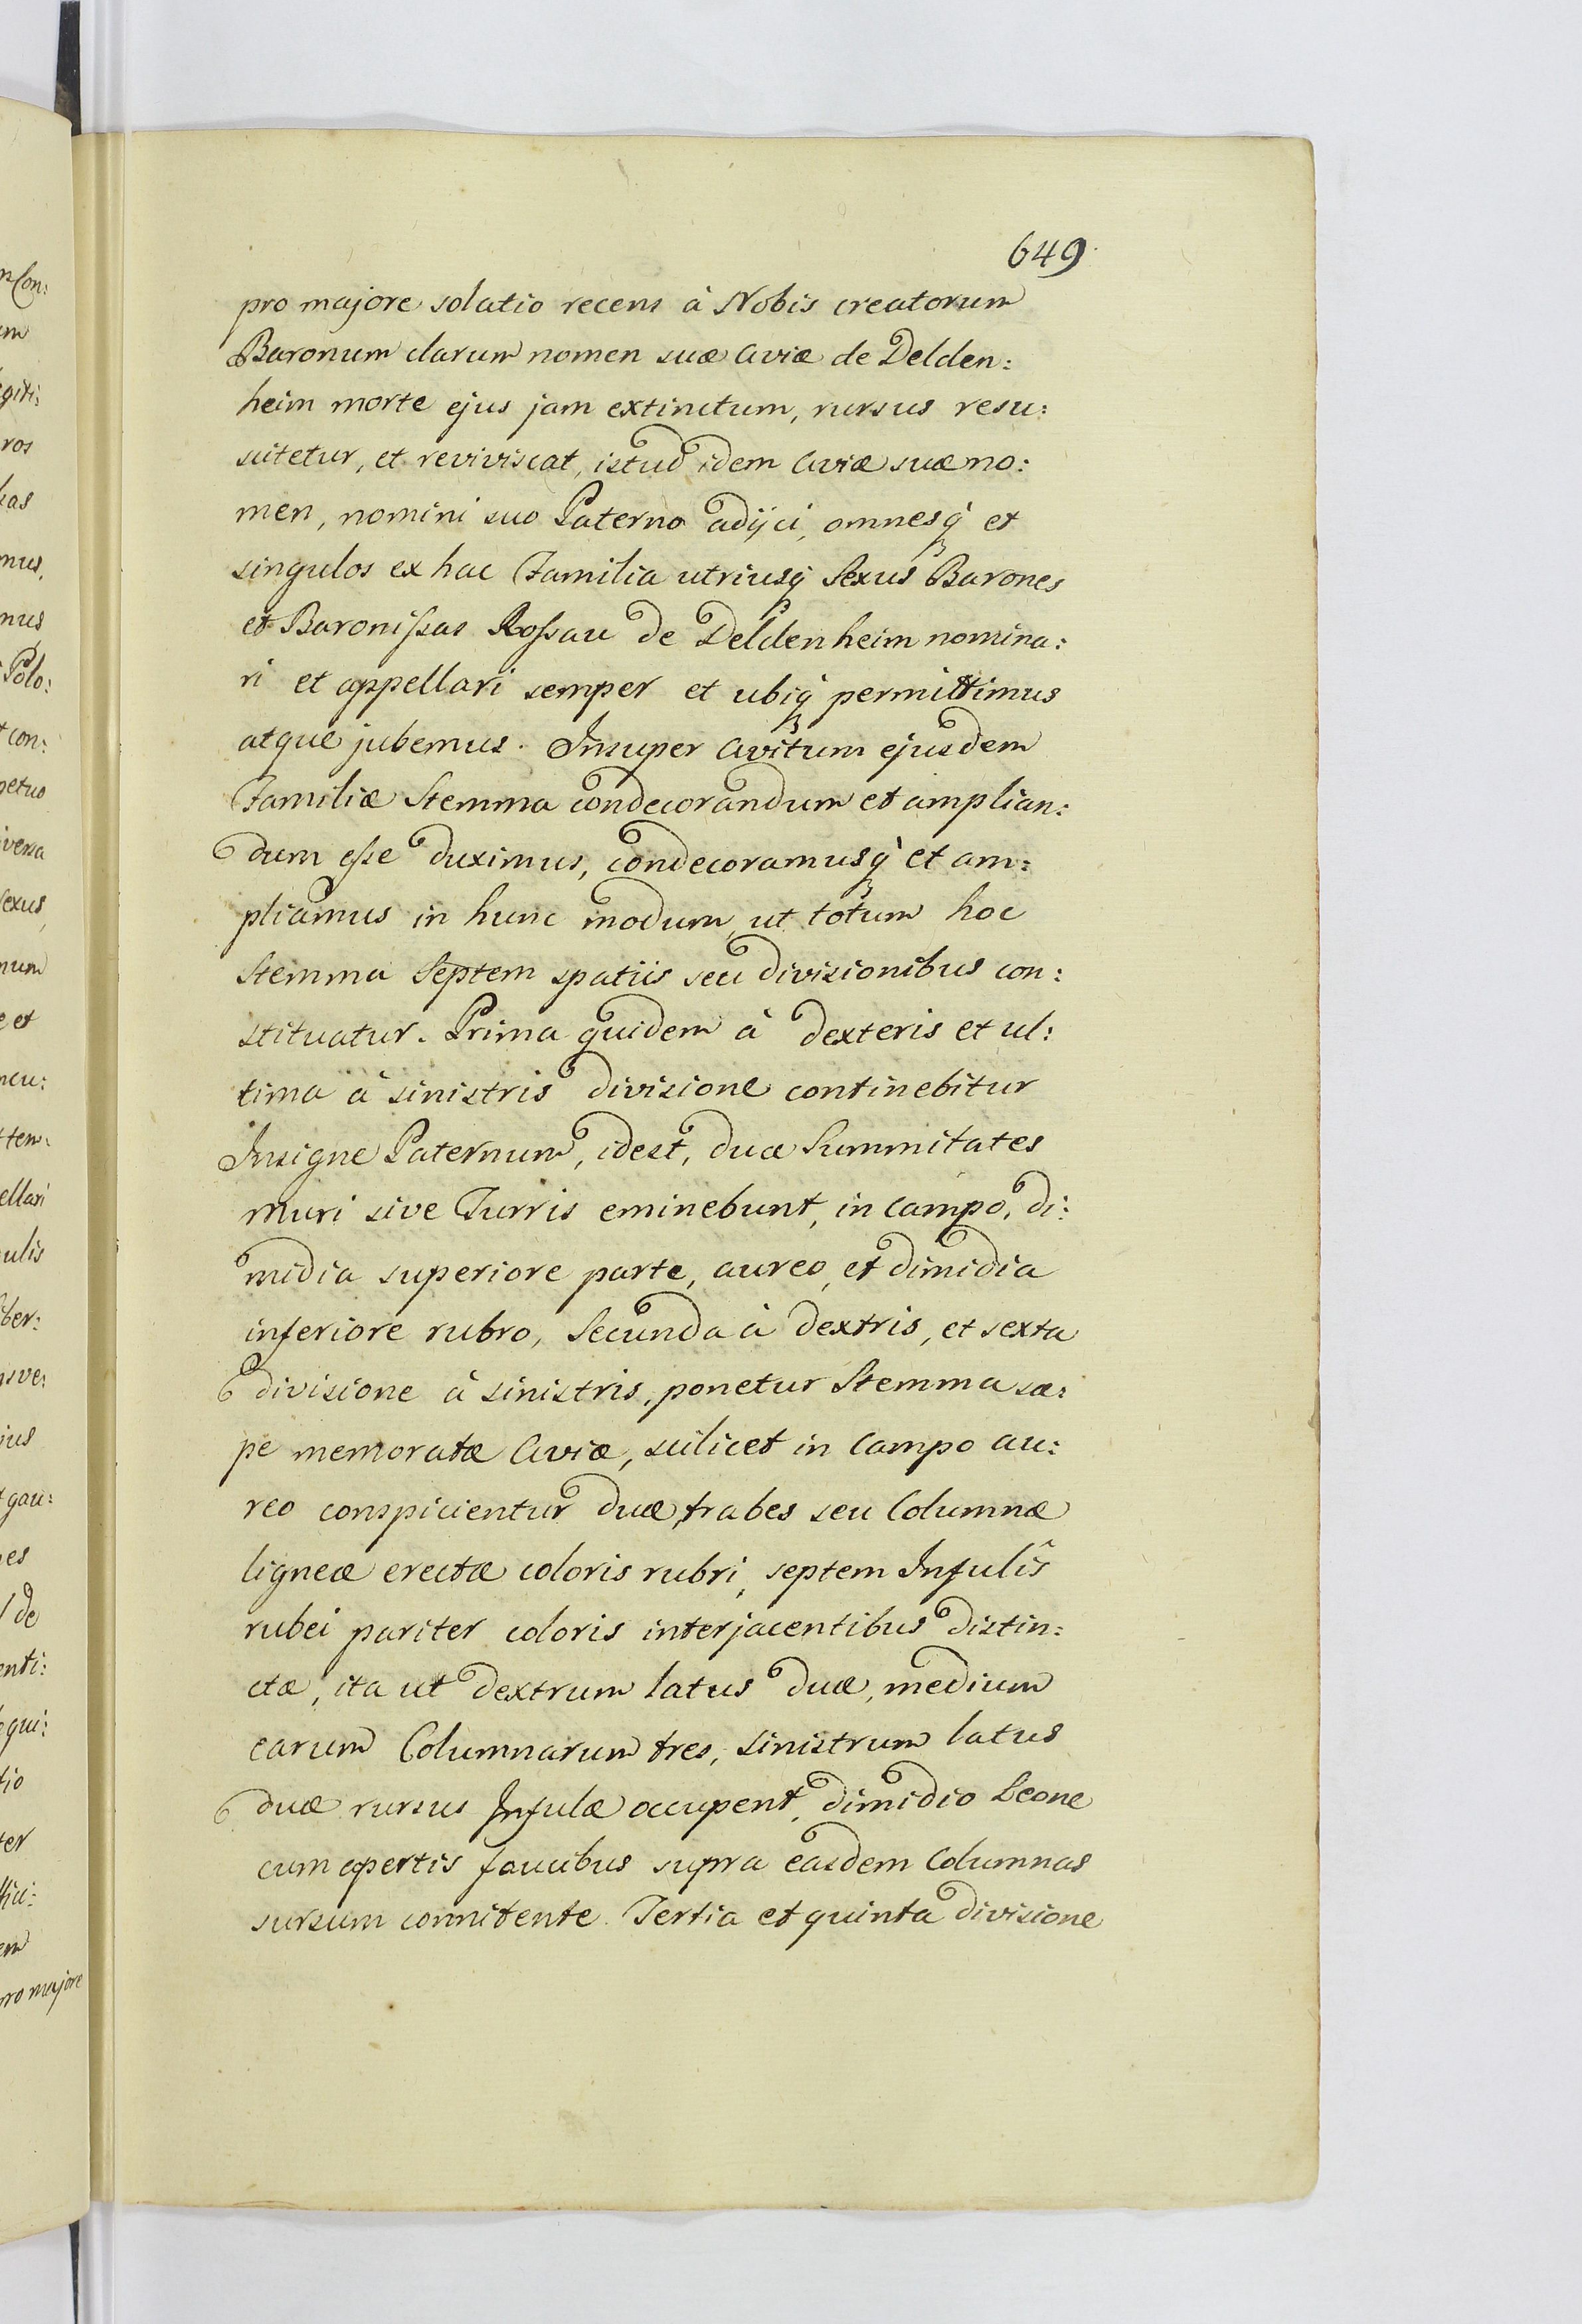 649.
pro majore solatio recens à Nobis creatorum
Baronum clarum nomen suæ Aviæ de Delden:
heim morte ejus jam extinctum, rursus resu:
scitetur, et reviviscat, istud idem Aviæ suæ no:
men, nomini suo Paterno adijci, omnesq́ꝫ et
singulos ex hac Familia utriusq́ꝫ Sexus Barones
et Baronissas Rossau de Deldenheim nomina:
ri et appellari semper et ubiq́ꝫ permittimus
atque jubemus. Insuper Avitum ejusdem
Familiæ Stemma condecorandum et amplian:
dum esse duximus, condecoramusq́ꝫ et am:
pliamus in hunc modum, ut totum hoc
Stemma Septem spatiis seu divisionibus con:
stituatur. Prima quidem à dexteris et ul:
tima à sinistris divisione continebitur
Insigne Paternum, idest, duæ Summitates
muri sive Turris eminebunt, in campo, di:
midia superiore parte, aureo, et dimidia
inferiore rubro, Secunda à dextris, et sexta
divisione à sinistris, ponetur Stemma sæ:
pe memoratæ Aviæ, scilicet in Campo au:
reo conspicientur duæ trabes seu Columnæ
ligneæ erectæ coloris rubri, septem Infulis
rubei pariter coloris interjacentibus distin:
ctæ, ita ut dextrum latus duæ, medium
earum Columnarum tres, sinistrum latus
duæ rursus Infulæ occupent, dimidio Leone
cum apertis faucibus supra easdem Columnas
sursum connitente. Tertia et quinta divisione
n Con:
um
egiti:
ros
nus
Polo:
con:
petuo
iversa
sexus,
num
e et
ellari
ulis
gau:
nes
de
enti:
qui:
tio
ter
em
pro majore